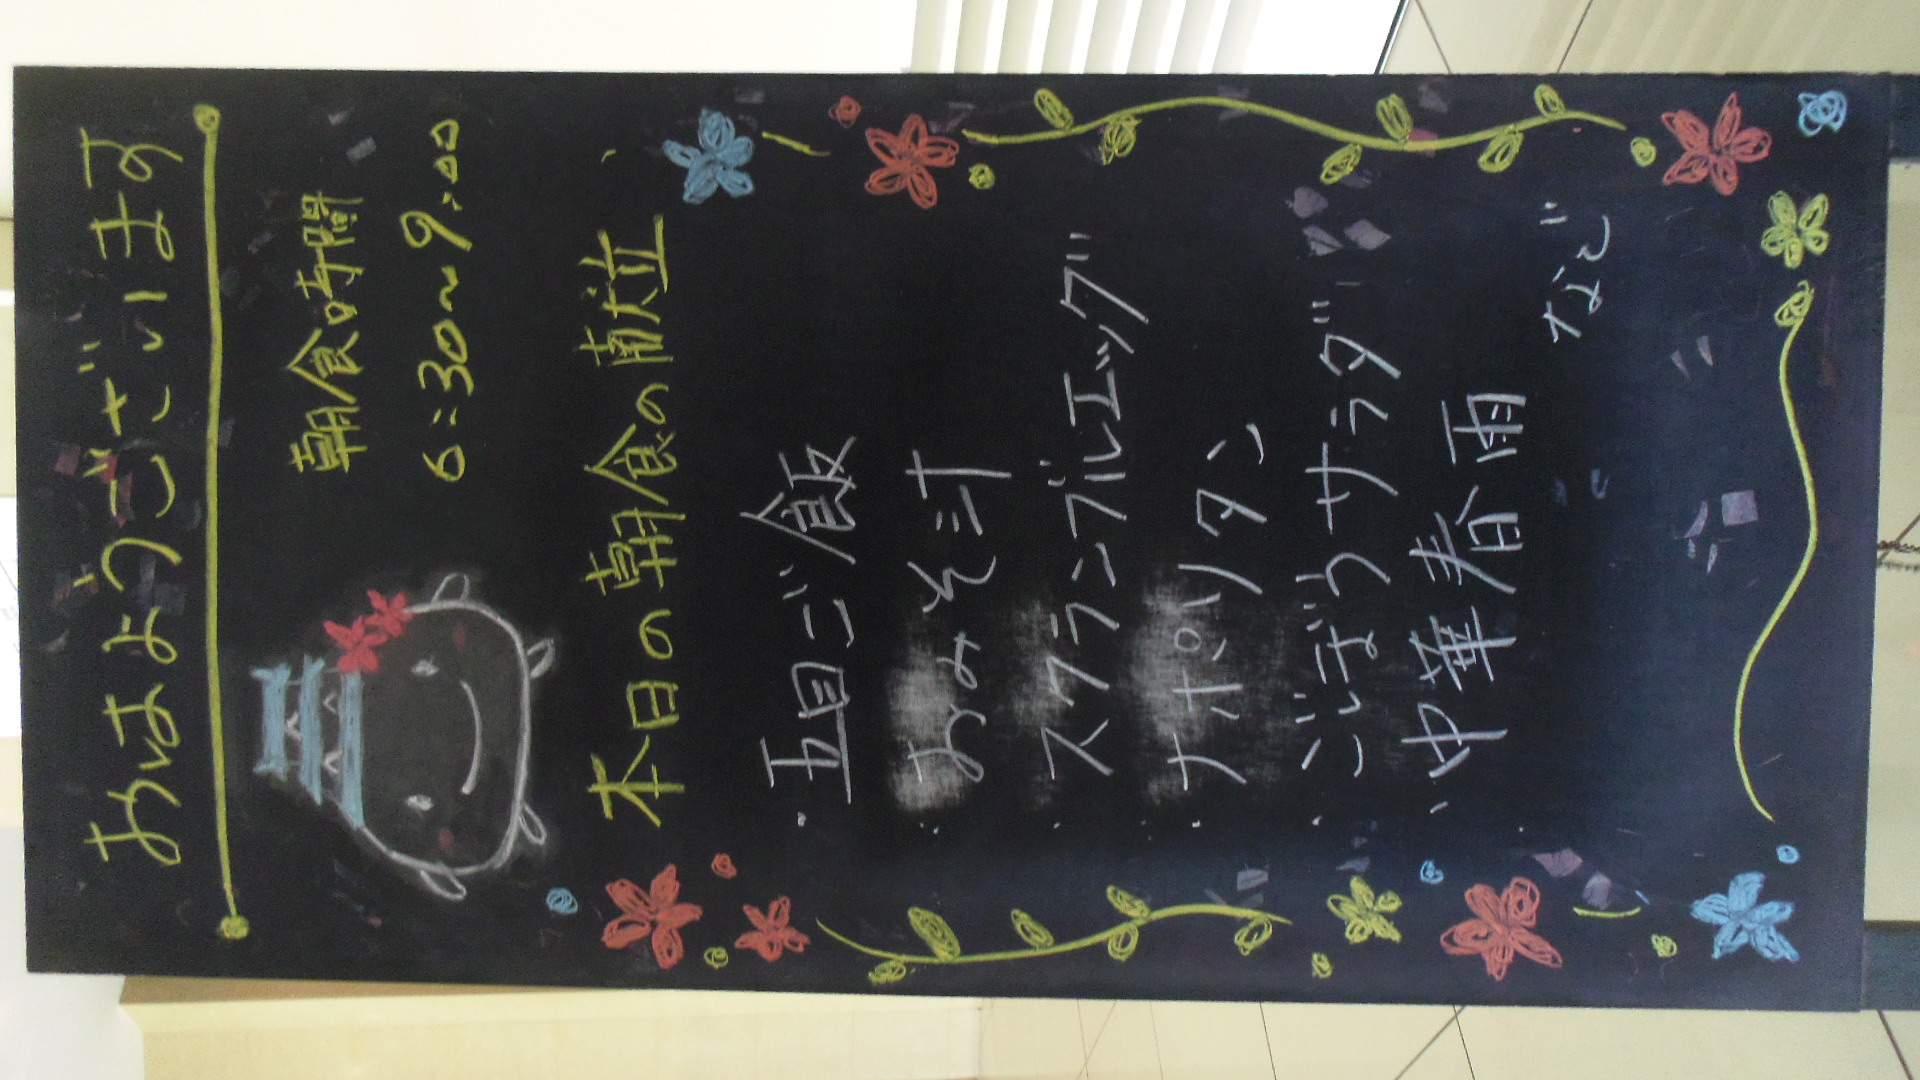 おはようございます
朝食時間
6:30～9:00
本日の朝食の献立
・五目ご飯
・おみそ汁
・スクランブルエッグ
・ナポリタン
・ごぼうサラダ
・中華春雨
など